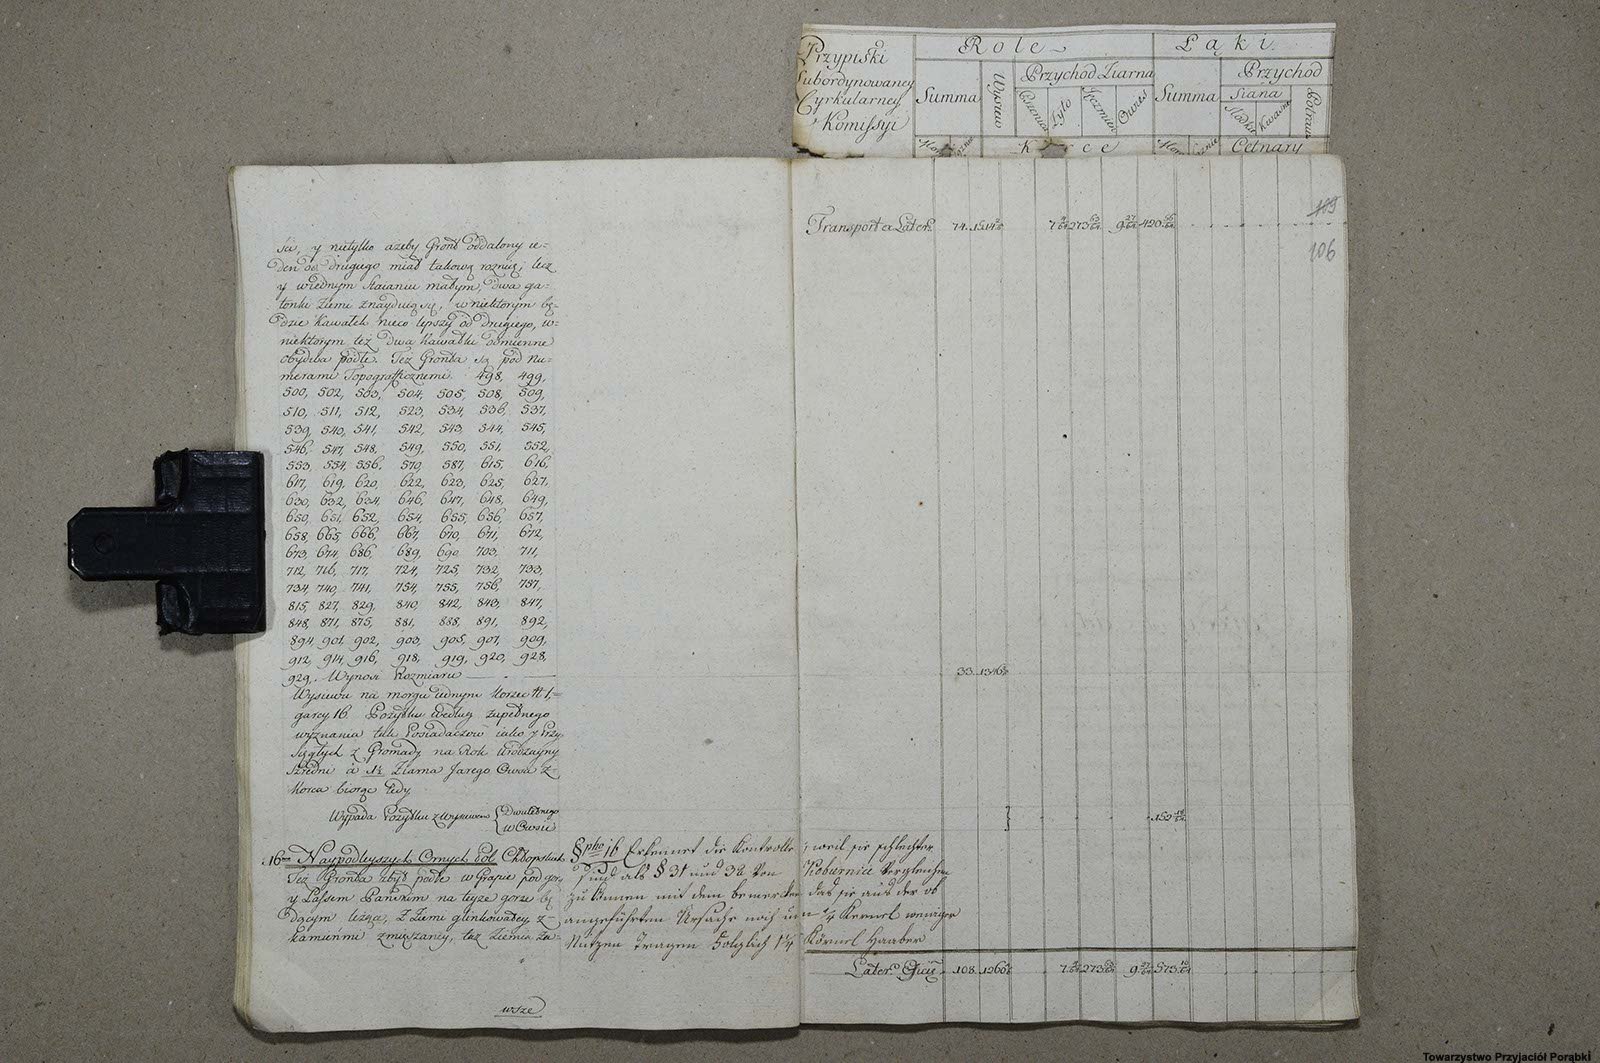 Przypiski
Subordynowaney
Cyrkularney
Komissyi
Role
Łąki.
Summa
Wysiew
Przychod Ziarna
Pszenica
Żyto
Jęczmień
Owies
Korce
Summa
Przychod
Siana
Słodkie
Kwaśne
Potraw
Cetnary
109
106
Transport a Latere
ści, y nietylko ażeby Gront oddalony ie=
den od drugiego miał takową roznicę, lecz
y w iednym Staianiu małym, dwa ga=
tonki Ziemi znayduią się, w niektorym bę=
dzie kawałek nieco lepszy od drugiego, w=
niektorym też dwa kawałki odmienne
obydwa podłe. Też Gronta są pod Nu=
merami Topograficznemi. 498, 499,
500, 502, 503, 504, 505, 508, 509,
510, 511, 512, 523, 534, 536, 537,
539, 540, 541, 542, 543, 544, 545,
546, 547, 548, 549, 550, 551, 552,
553, 554, 556, 579, 587, 615, 616,
617, 619, 620, 622, 623, 625, 627,
630, 632, 634, 646, 647, 648, 649,
650, 651, 652, 654, 655, 656, 657,
658, 665, 666, 667, 670, 671, 672,
673, 674, 686, 689, 690, 703, 711,
712, 716, 717, 724, 725, 732, 733,
734, 740, 741, 754, 755, 756, 757,
815, 827, 829, 840, 842, 843, 847,
848, 871, 875, 881, 888, 891, 892,
894, 901, 902, 903, 905, 907, 909,
912, 914, 916, 918, 919, 920, 928,
929, Wynosi Rozmiaru
33
Wysiewu na morgu iednym Korzec 1,
garcy 16. Pożytku według zupełnego
wyznania tak Posiadaczow iako y Przy
sięgłych z Gromady na Rok Urodzayny
Szredni à 1½ Ziarna Jarego Owsa z=
Korca biorąc tedy
Wypada Pożytku z Wysiewu { Dwuletnego
w Owsie
16 Naypodleyszych Ornych Rol Chłopskich
Też Gronta zbyt podłe w Grapie pod gorą
y Lasem Pańskim na teyże gorze bę
dącym leżące, z Ziemi glinkowatey, z=
kamieńmi zmieszaney, taż Ziemia za=
wsze
16 Erkennet die Kontrolle, weil sie schlechter
sind als § 31 und 32 von Kobiernice Vergleichen
zu können mit dem bemercken das sie aus der ob
angeführten Ursache noch um ¼ Kernel weniger
Nutzen Tragen folglich 1¼ Körnel Haaber
Later Ejus 108
Towarzystwo Przyjaciół Porąbki